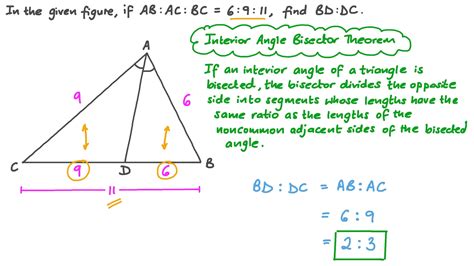 In the given figure, if AB:AC:BC = 6:9:11, find BD:DC.
Interior Angle Bisector Theorem
If an interior angle of a triangle is
bisected, the bisector divides the opposite
side into segments whose lengths have the
same ratio as the lengths of the
noncommon adjacent sides of the bisected
angle.
A
9
6
C
9
D
6
B
11
BD:DC = AB:AC
= 6:9
= 2:3